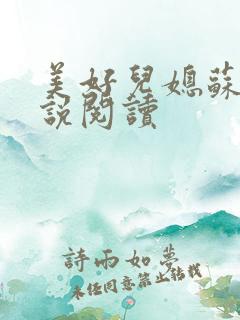 美好兒媳蘇
說閱讀
詩雨如夢
未经同意禁止转载